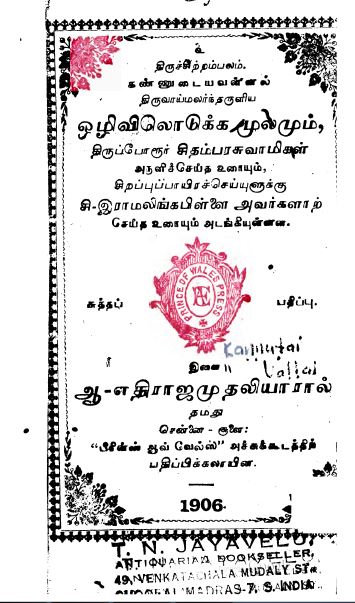 உ
திருச்சிற்றம்பலம்.
கண்ணுடையவள்ளல்
திருவாய்மலர்ந்தருளிய
ஒழிவிலொடுக்க மூலமும்,
திருப்போரூர் சிதம்பரசுவாமிகள்
அருளிச்செய்த உரையும்,
சிறப்புப்பாயிரச்செய்யுளுக்கு
சி-இராமலிங்கபிள்ளை அவர்களாற்
செய்த உரையும் அடங்கியுள்ளன.
PRINCE OF WALES PRESS
சுத்தப் பதிப்பு.
Kannutai
Vallal
இவை
ஆ-எதிராஜமுதலியாரால்
தமது
சென்னை - சூளை:
"பிரின்ஸ் ஆவ் வேல்ஸ்" அச்சுக்கூடத்திற்
பதிப்பிக்கலாயின.
1906
T. N. JAYAVELU,
ANTIQUARIAN BOOKSELLER,
49, VENKATACHALA MUDALY ST.
MADRAS-7. S. INDIA